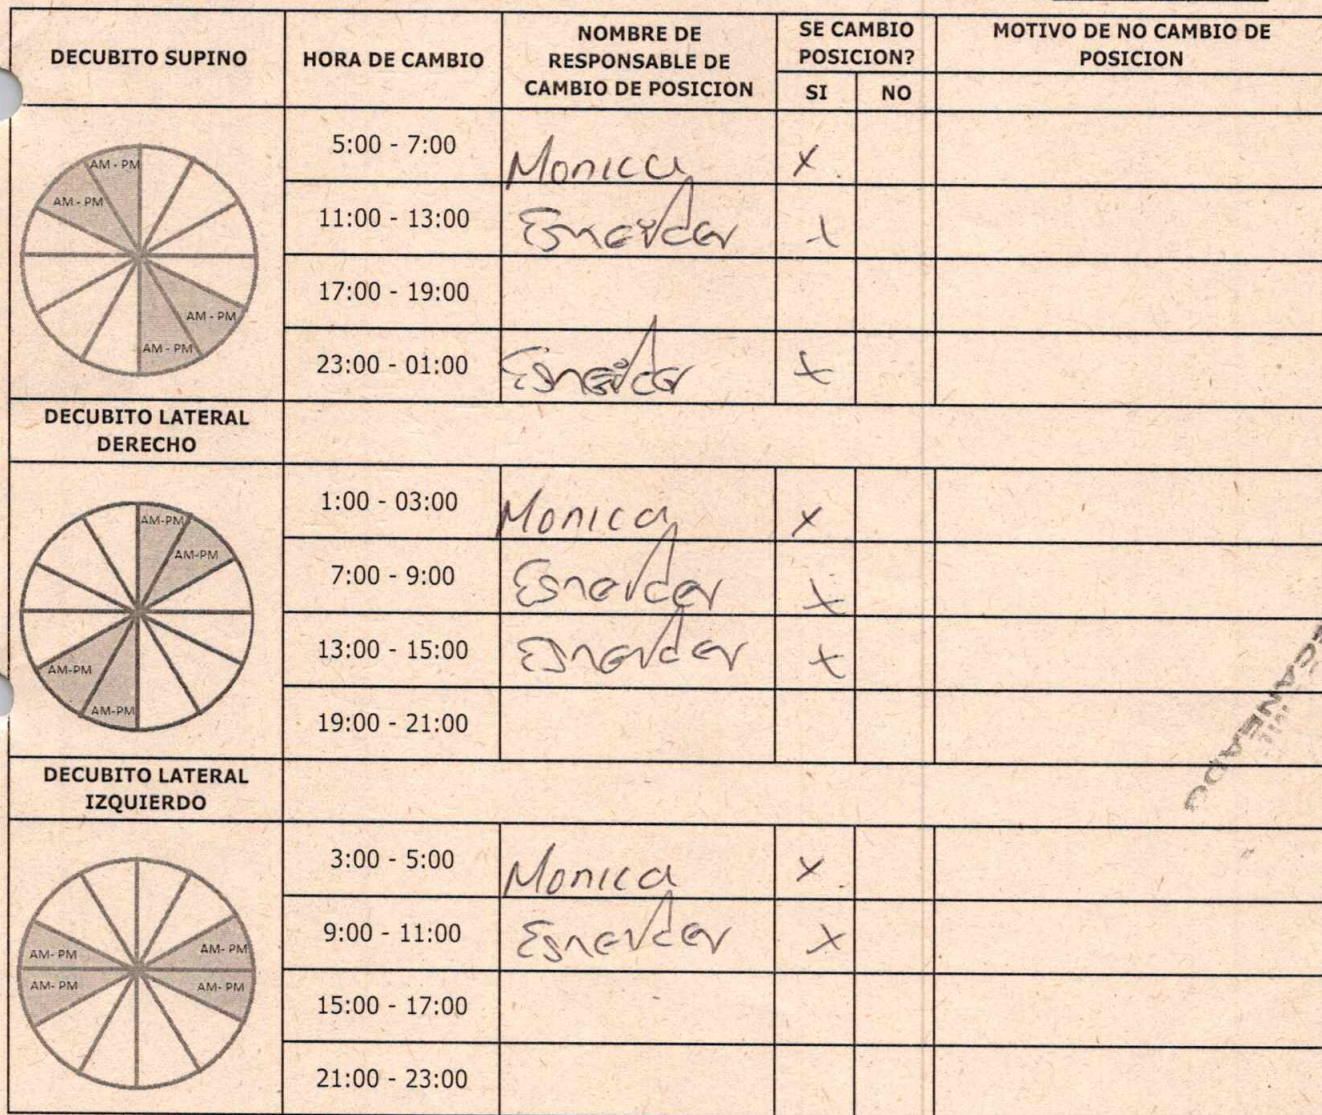 DECUBITO SUPINO
HORA DE CAMBIO
NOMBRE DE
RESPONSABLE DE
CAMBIO DE POSICION
SE CAMBIO
POSICION?
SI
NO
MOTIVO DE NO CAMBIO DE
POSICION
AM - PM
AM - PM
AM - PM
AM - PM
5:00 - 7:00 Monica X
11:00 - 13:00 Esneider X
17:00 - 19:00
23:00 - 01:00 Esneider X
DECUBITO LATERAL
DERECHO
AM-PM
AM-PM
AM-PM
AM-PM
1:00 - 03:00 Monica X
7:00 - 9:00 Esneider X
13:00 - 15:00 Esneider X
19:00 - 21:00
DECUBITO LATERAL
IZQUIERDO
AM- PM
AM- PM
AM- PM
AM- PM
3:00 - 5:00 Monica X
9:00 - 11:00 Esneider X
15:00 - 17:00
21:00 - 23:00